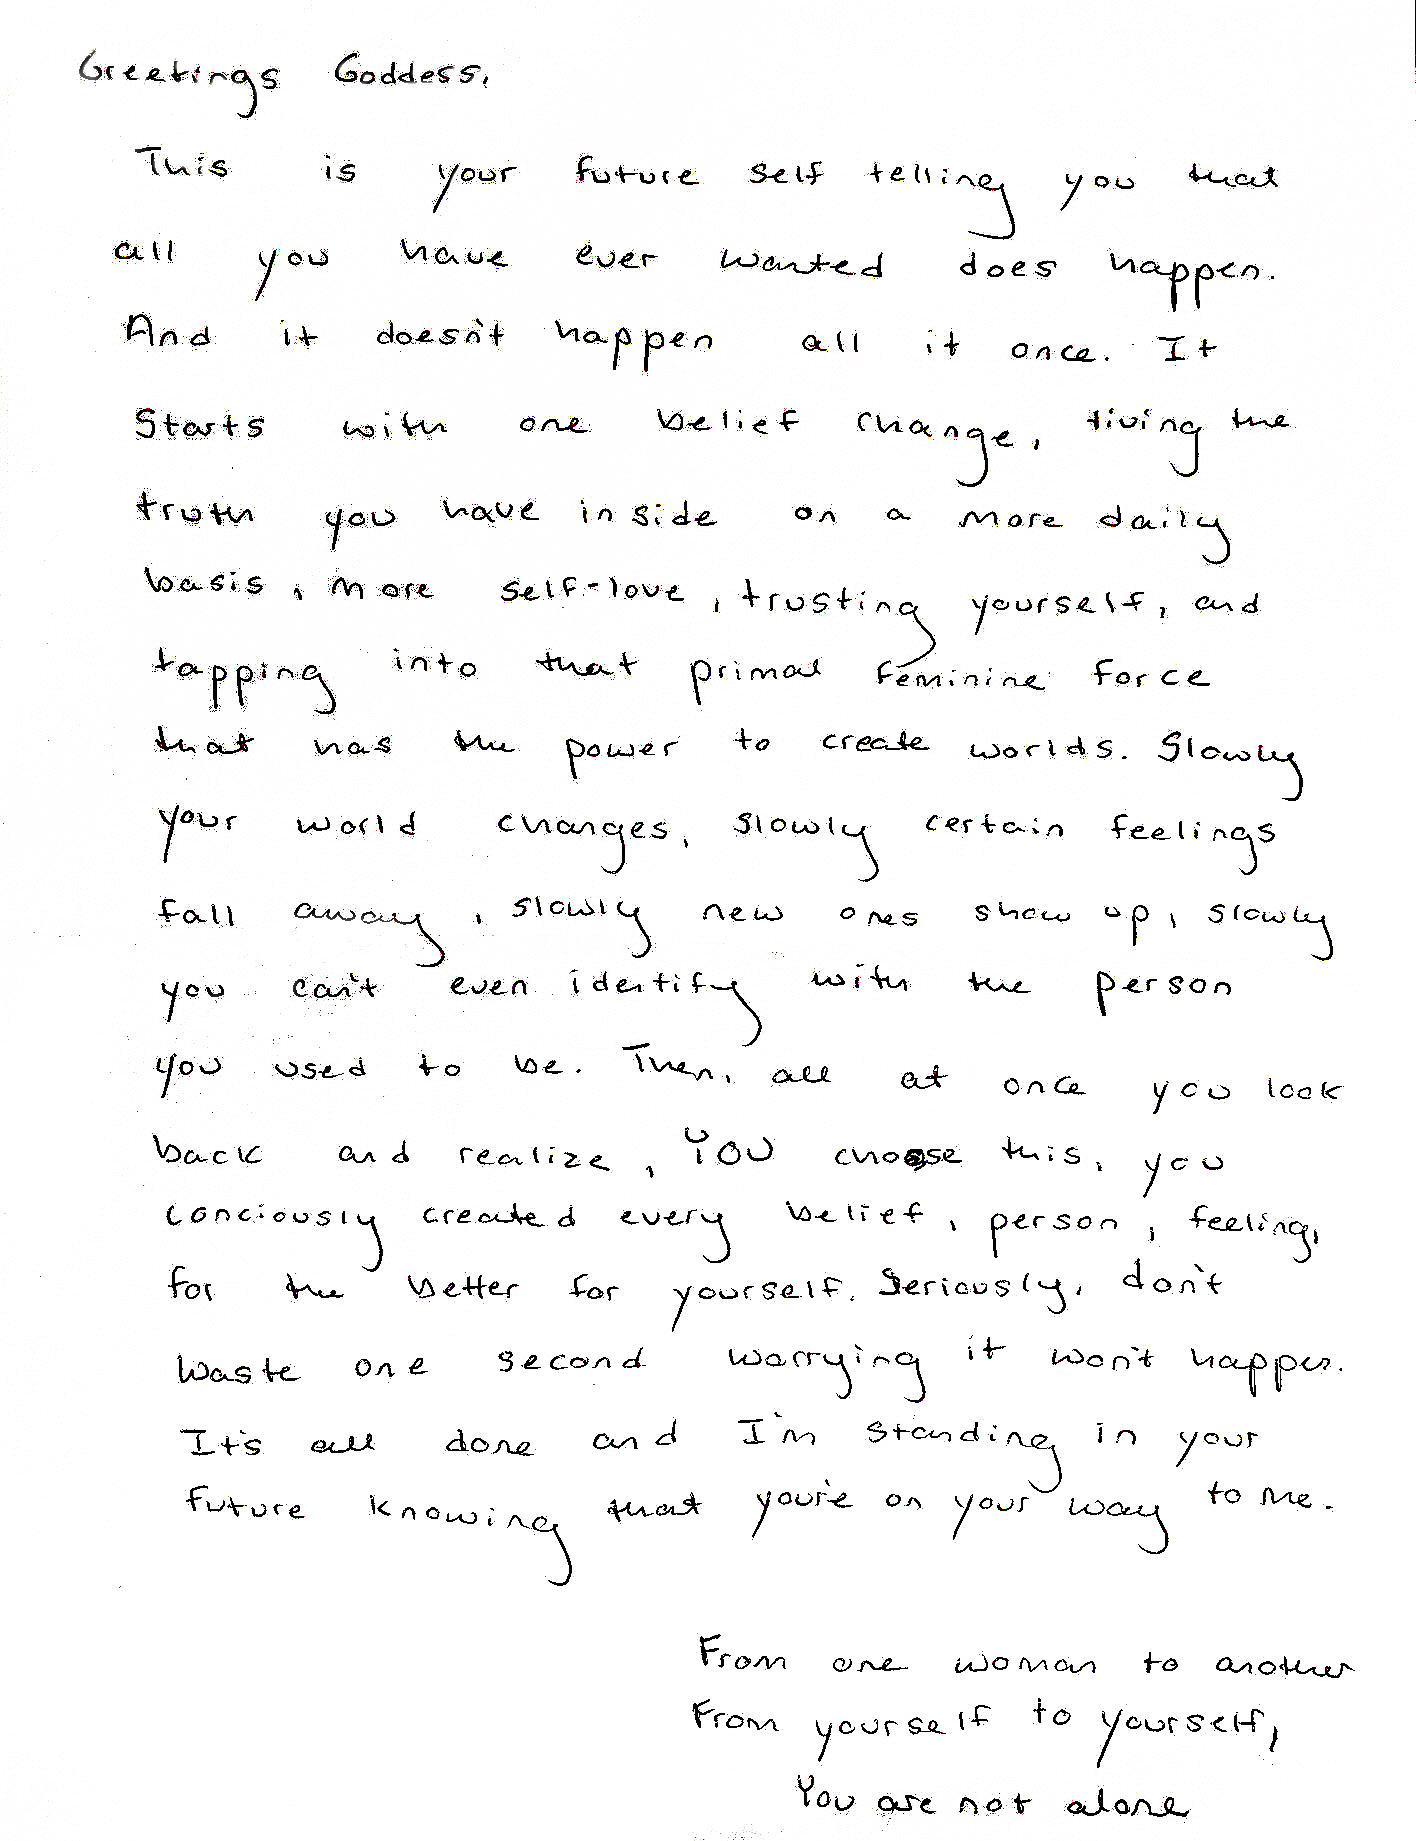 Greetings Goddess,
This is your future self telling you that
all you have ever wanted does happen.
And it doesn't happen all it once. It
starts with one belief change, living the
truth you have inside on a more daily
basis, more self-love, trusting yourself, and
tapping into that primal feminine force
that has the power to create worlds. Slowly
your world changes, slowly certain feelings
fall away, slowly new ones show up, slowly
you can't even identify with the person
you used to be. Then, all at once you look
back and realize, YOU choose this, you
conciously created every belief, person, feeling,
for the better for yourself. Seriously, don't
waste one second worrying it won't happen.
It's all done and I'm standing in your
future knowing that you're on your way to me.
From one woman to another
From yourself to yourself,
You are not alone